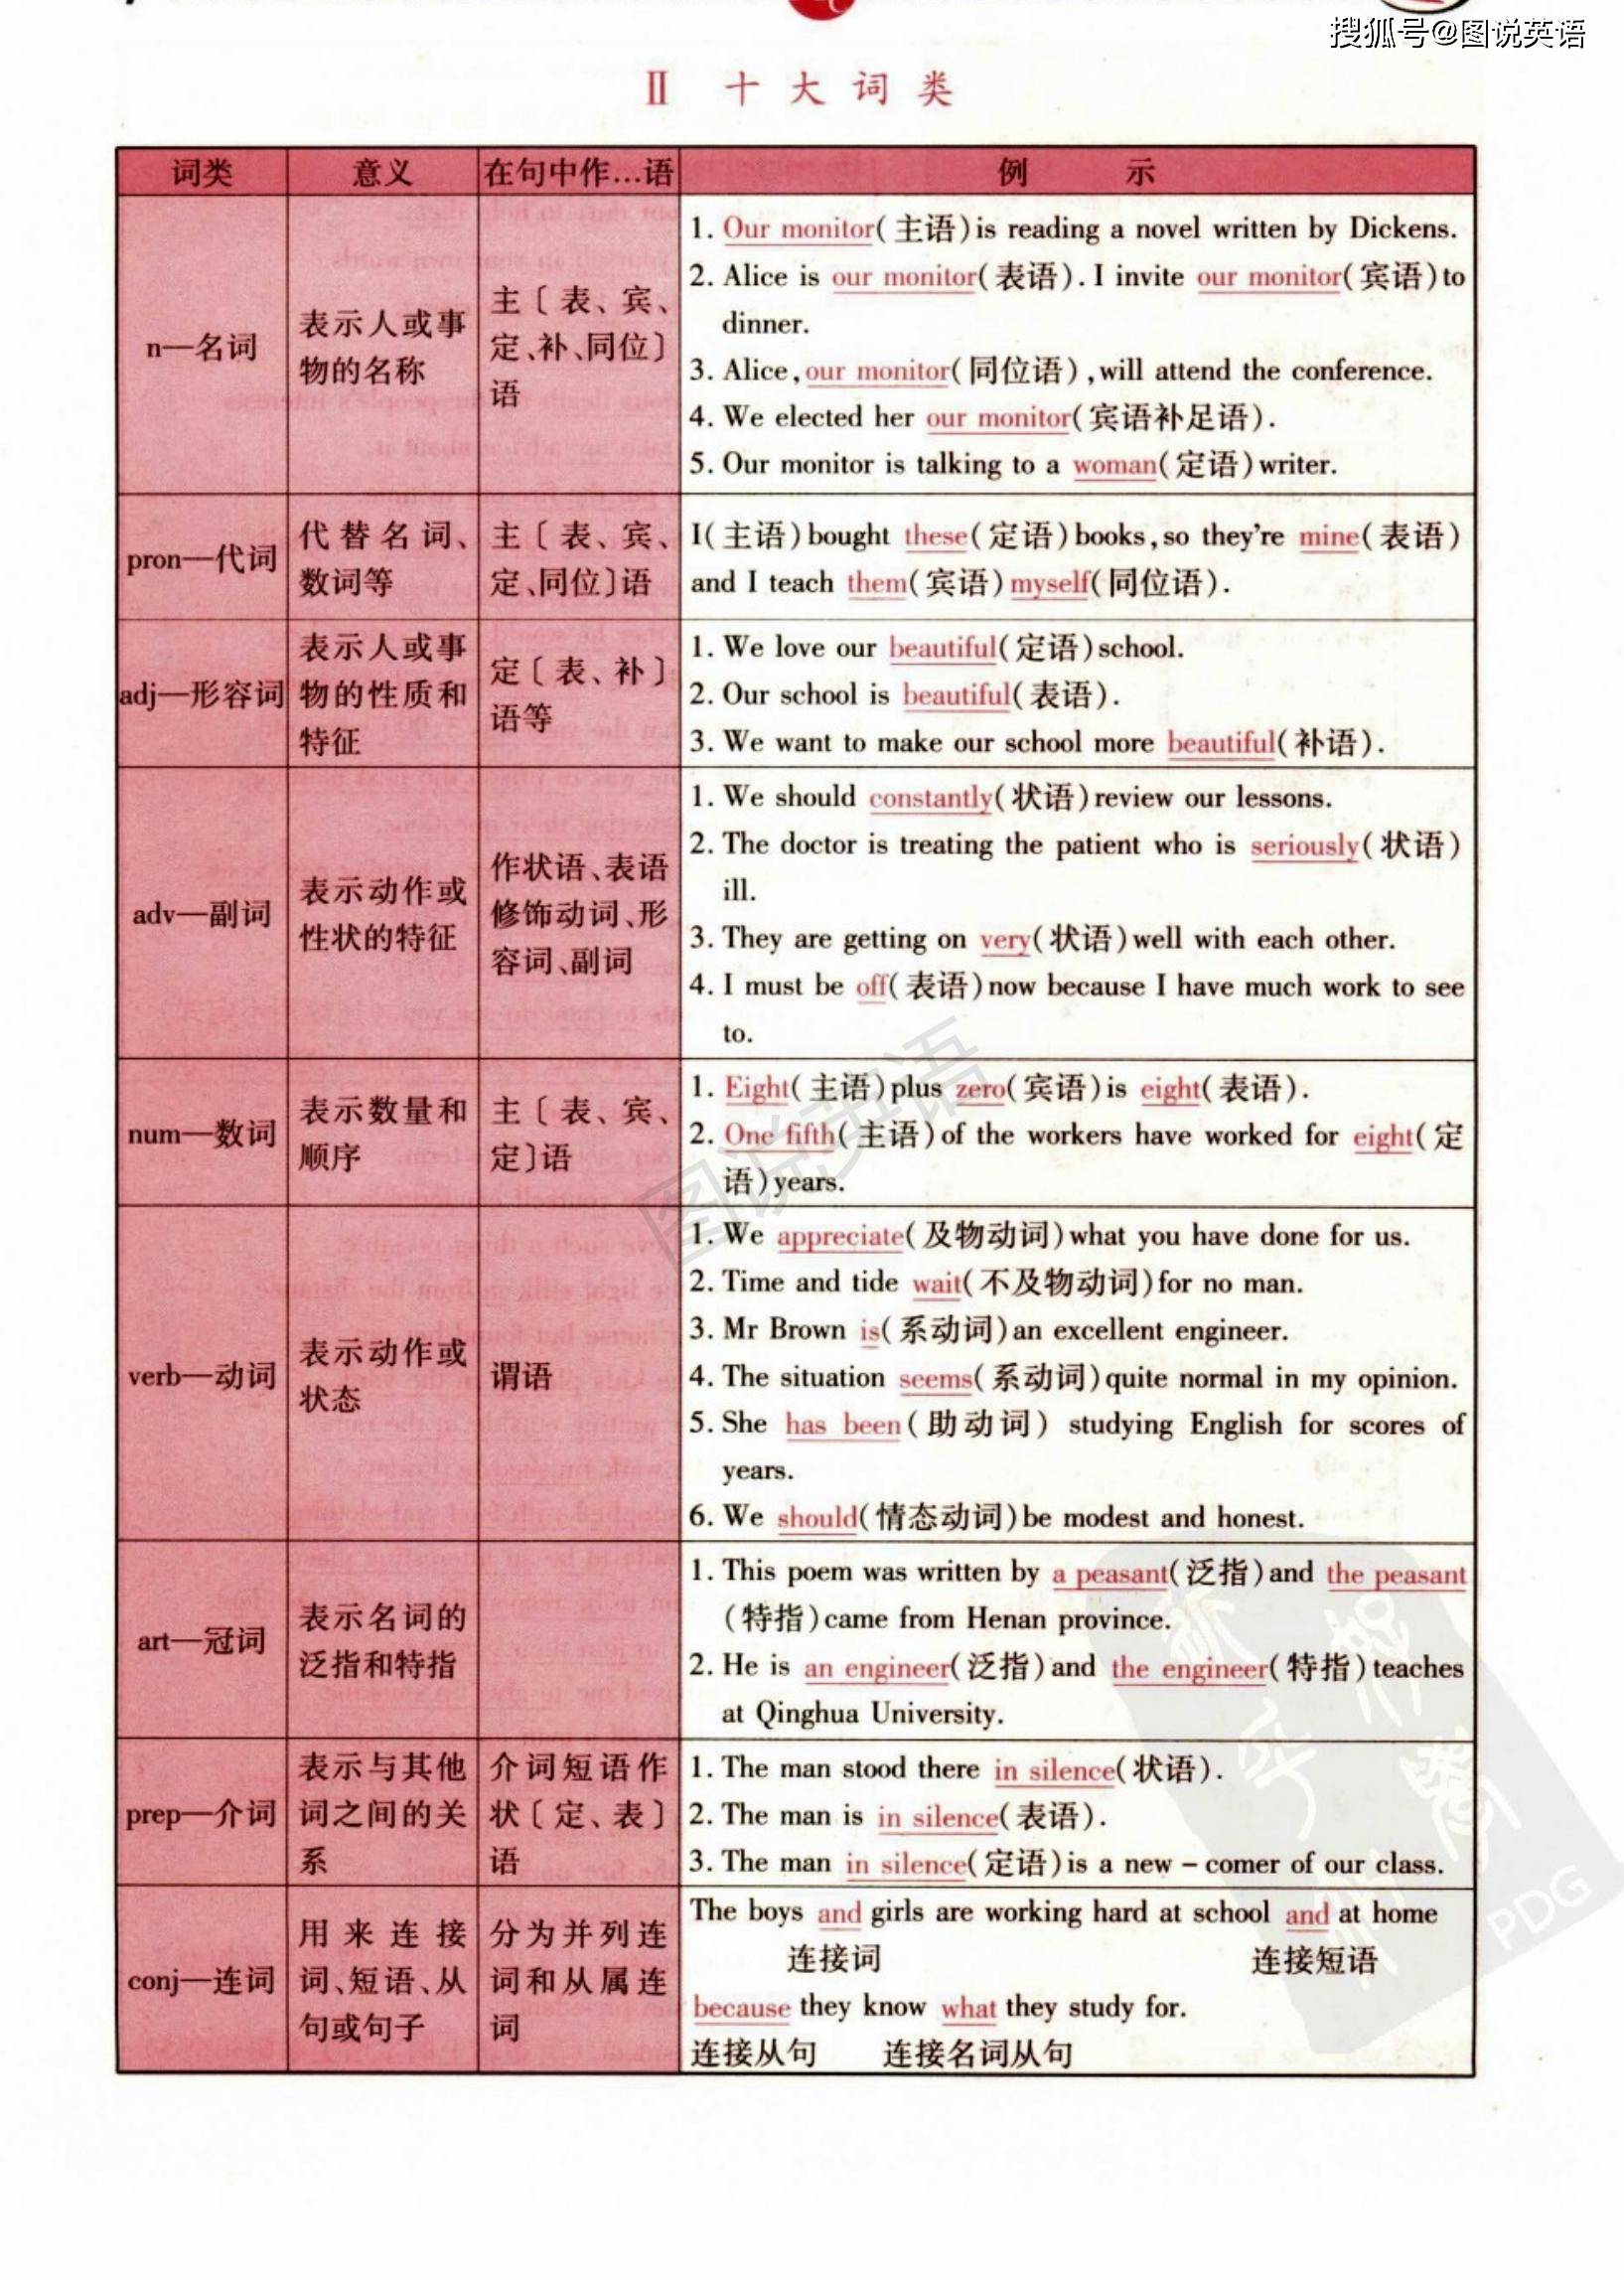 搜狐号@图说英语
Ⅱ 十大词类
词类 意义 在句中作…语 例 示
n—名词
表示人或事
物的名称
主〔表、宾、
定、补、同位〕
语
1. Our monitor(主语)is reading a novel written by Dickens.
2. Alice is our monitor(表语). I invite our monitor(宾语)to
dinner.
3. Alice, our monitor(同位语), will attend the conference.
4. We elected her our monitor(宾语补足语).
5. Our monitor is talking to a woman(定语)writer.
pron—代词
代替名词、
数词等
主〔表、宾、
定、同位〕语
I(主语)bought these(定语)books, so they're mine(表语)
and I teach them(宾语)myself(同位语).
adj—形容词
表示人或事
物的性质和
特征
定〔表、补〕
语等
1. We love our beautiful(定语)school.
2. Our school is beautiful(表语).
3. We want to make our school more beautiful(补语).
adv—副词
表示动作或
性状的特征
作状语、表语
修饰动词、形
容词、副词
1. We should constantly(状语)review our lessons.
2. The doctor is treating the patient who is seriously(状语)
ill.
3. They are getting on very(状语)well with each other.
4. I must be off(表语)now because I have much work to see
to.
num—数词
表示数量和
顺序
主〔表、宾、
定〕语
1. Eight(主语)plus zero(宾语)is eight(表语).
2. One fifth(主语)of the workers have worked for eight(定
语)years.
verb—动词
表示动作或
状态
谓语
1. We appreciate(及物动词)what you have done for us.
2. Time and tide wait(不及物动词)for no man.
3. Mr Brown is(系动词)an excellent engineer.
4. The situation seems(系动词)quite normal in my opinion.
5. She has been(助动词) studying English for scores of
years.
6. We should(情态动词)be modest and honest.
art—冠词
表示名词的
泛指和特指
1. This poem was written by a peasant(泛指)and the peasant
(特指)came from Henan province.
2. He is an engineer(泛指)and the engineer(特指)teaches
at Qinghua University.
prep—介词
表示与其他
词之间的关
系
介词短语作
状〔定、表〕
语
1. The man stood there in silence(状语).
2. The man is in silence(表语).
3. The man in silence(定语)is a new-comer of our class.
conj—连词
用来连接
词、短语、从
句或句子
分为并列连
词和从属连
词
The boys and girls are working hard at school and at home
连接词 连接短语
because they know what they study for.
连接从句 连接名词从句
图说英语
PDG